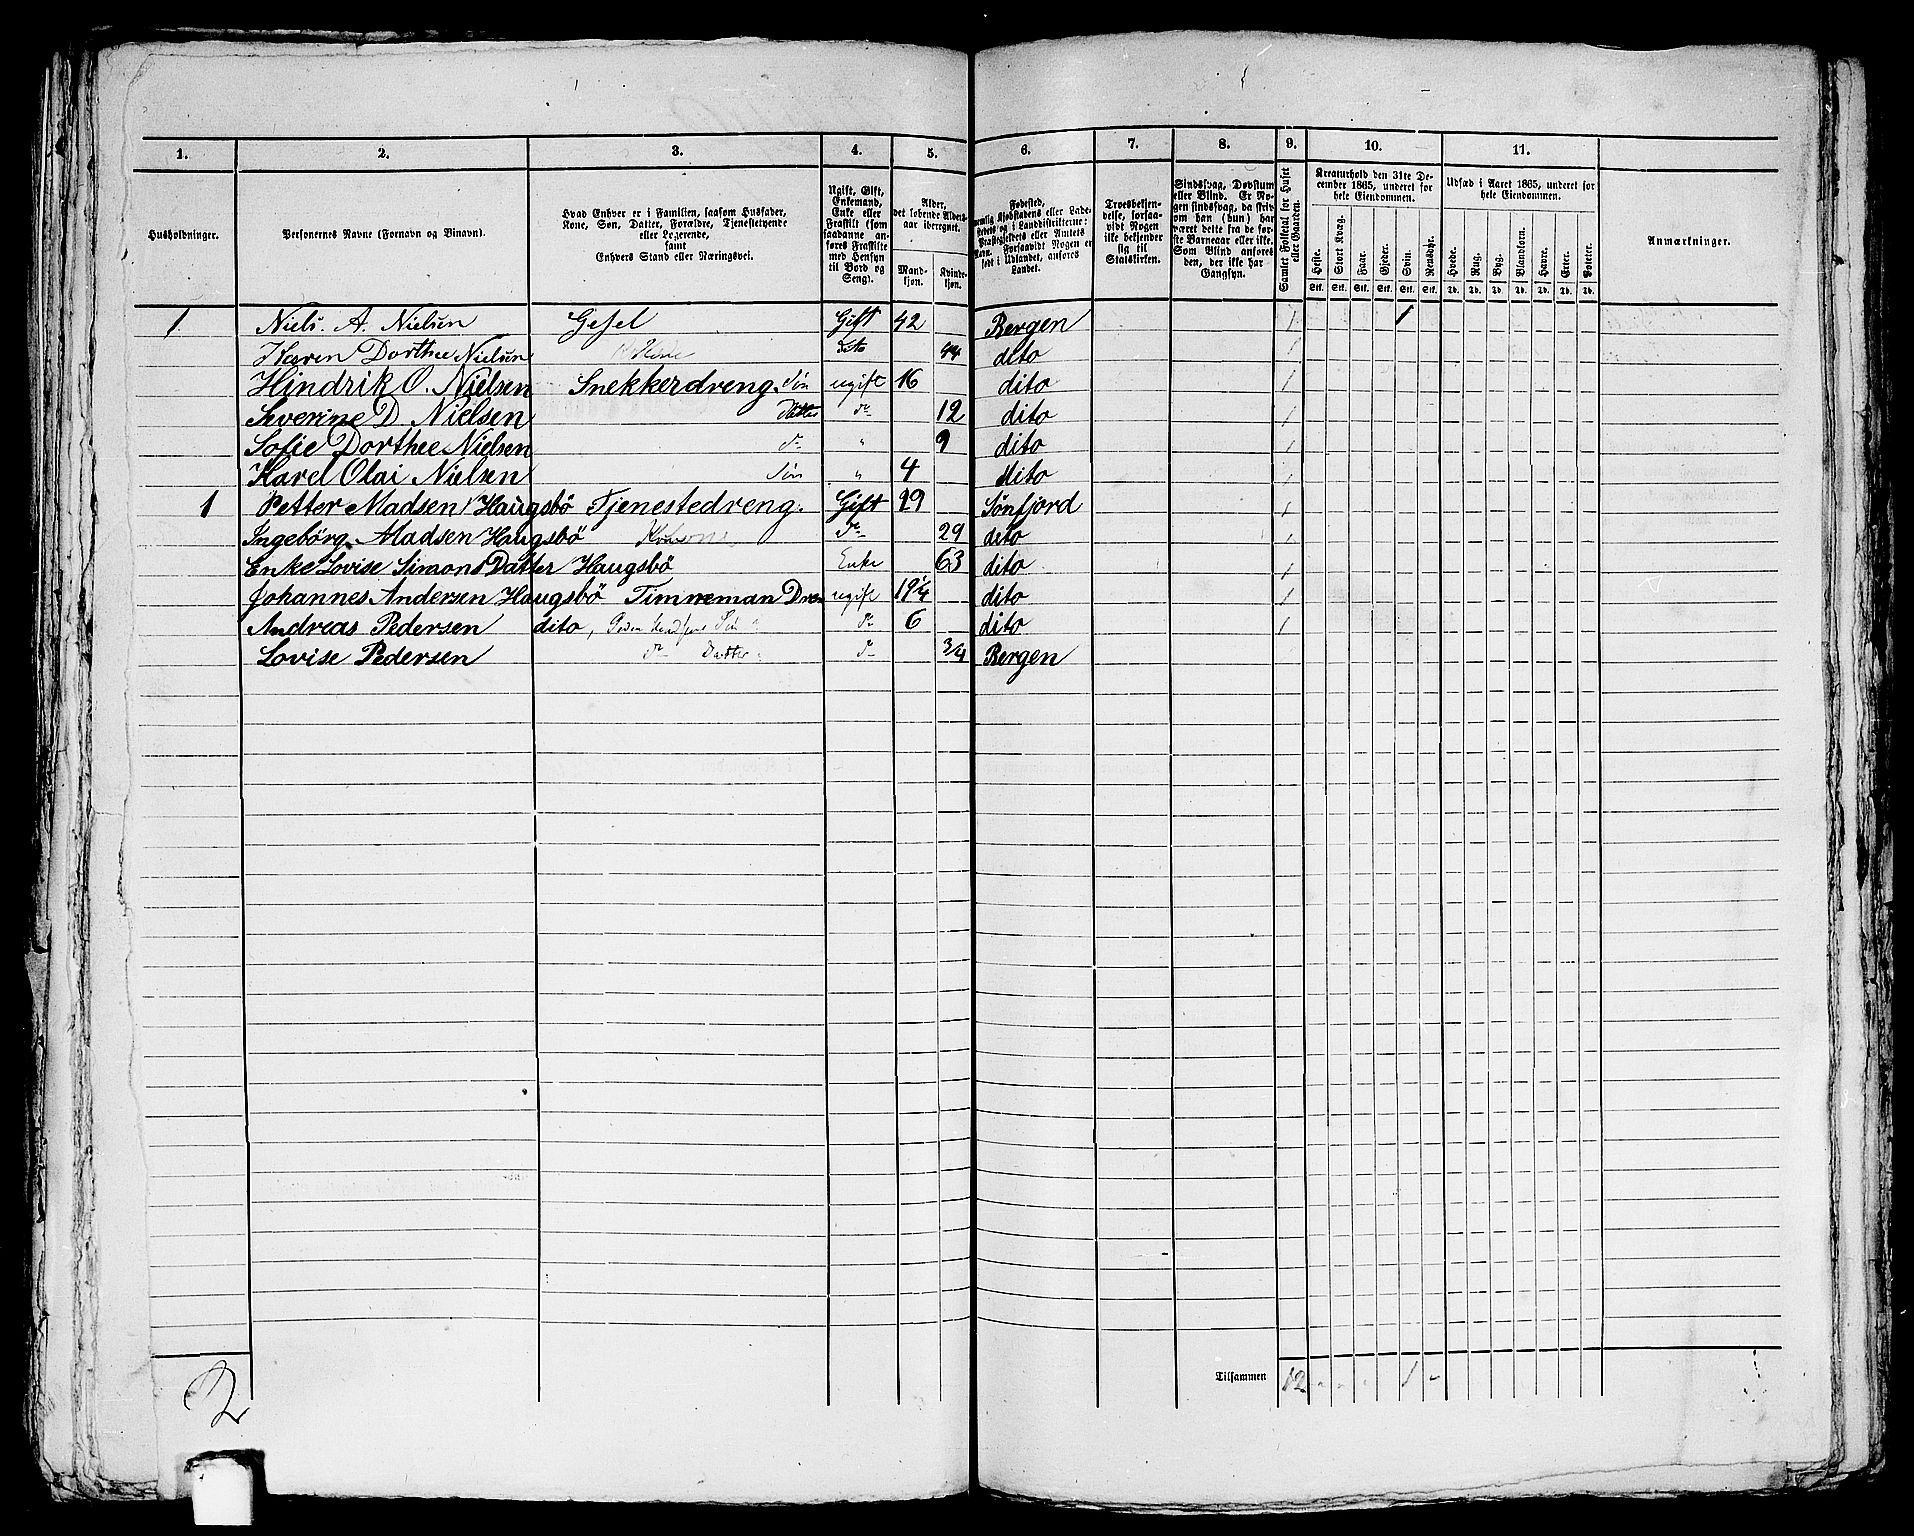 1. 2. 3. 4. 5. 6. 7. 8. 9. 10. 11.
Husholdninger.
Personernes Navne (Fornavn og Binavn).
Hvad Enhver er i Familien, saasom Husfader,
Kone, Søn, Datter, Forældre, Tjenestetyende
eller Logerende,
samt
Enhvers Stand eller Næringsvei.
Ugift, Gift,
Enkemand,
Enke eller
Fraskilt (som
saadanne an-
føres Fraskilte
med Hensyn
til Bord og
Seng).
Alder,
det løbende Alders-
aar iberegnet.
Mand-
kjøn.
Kvinde-
kjøn.
Fødested,
nemlig Kjøbstadens eller Lade-
stedets og i Landdistrikterne:
Præstegjeldets eller Amtets
Navn. Forsaavidt Nogen er
født i Udlandet, anføres
Landet.
Troesbekjen-
delse, forsaa-
vidt Nogen
ikke bekjender
sig til
Statskirken.
Sindssvag, Døvstum
eller Blind. Er No-
gen sindssvag, da skriv
om han (hun) har
været dette fra de før-
ste Barneaar eller ikke.
Som Blind anføres
den, der ikke har
Gangsyn.
Samlet Folketal for Huset
eller Gaarden.
Kreaturhold den 31te De-
cember 1865, underet for
hele Eiendommen.
Heste. Stort Kvæg. Faar. Gjeder. Svin. Rensdyr.
Stk. Stk. Stk. Stk. Stk. Stk.
Udsæd i Aaret 1865, underet for
hele Eiendommen.
Hvede. Rug. Byg. Blandkorn. Havre. Erter. Poteter.
Td. Td. Td. Td. Td. Td. Td.
Anmærkninger.
1 Niels. A. Nielsen Gesel Gift 42 Bergen 1 1
Karen Dorthee Nielsen Kone dito 44 dito 1
Hindrik O. Nielsen Snekkerdreng. Søn ugift 16 dito 1
Severine D Nielsen Datter do 12 dito 1
Sofie Dorthee Nielsen do " 9 dito 1
Karel Olai Nielsen Søn " 4 dito 1
1 Petter Madsen Haugsbö Tjenestedreng. Gift 29 Sönfjord 1
Ingebörg Madsen Haugsbö Kone do 29 dito 1
Enke Lovise Simons Datter Haugsbö Enke 63 dito 1
Johannes Andersen Haugsbö Timmeman Dren ugift 19 1/4 dito 1
Andreas Pedersen dito, Søn do 6 dito 1
Lovise Pedersen do Datter do 3/4 Bergen
Tilsammen 12 " " " 1 "
2